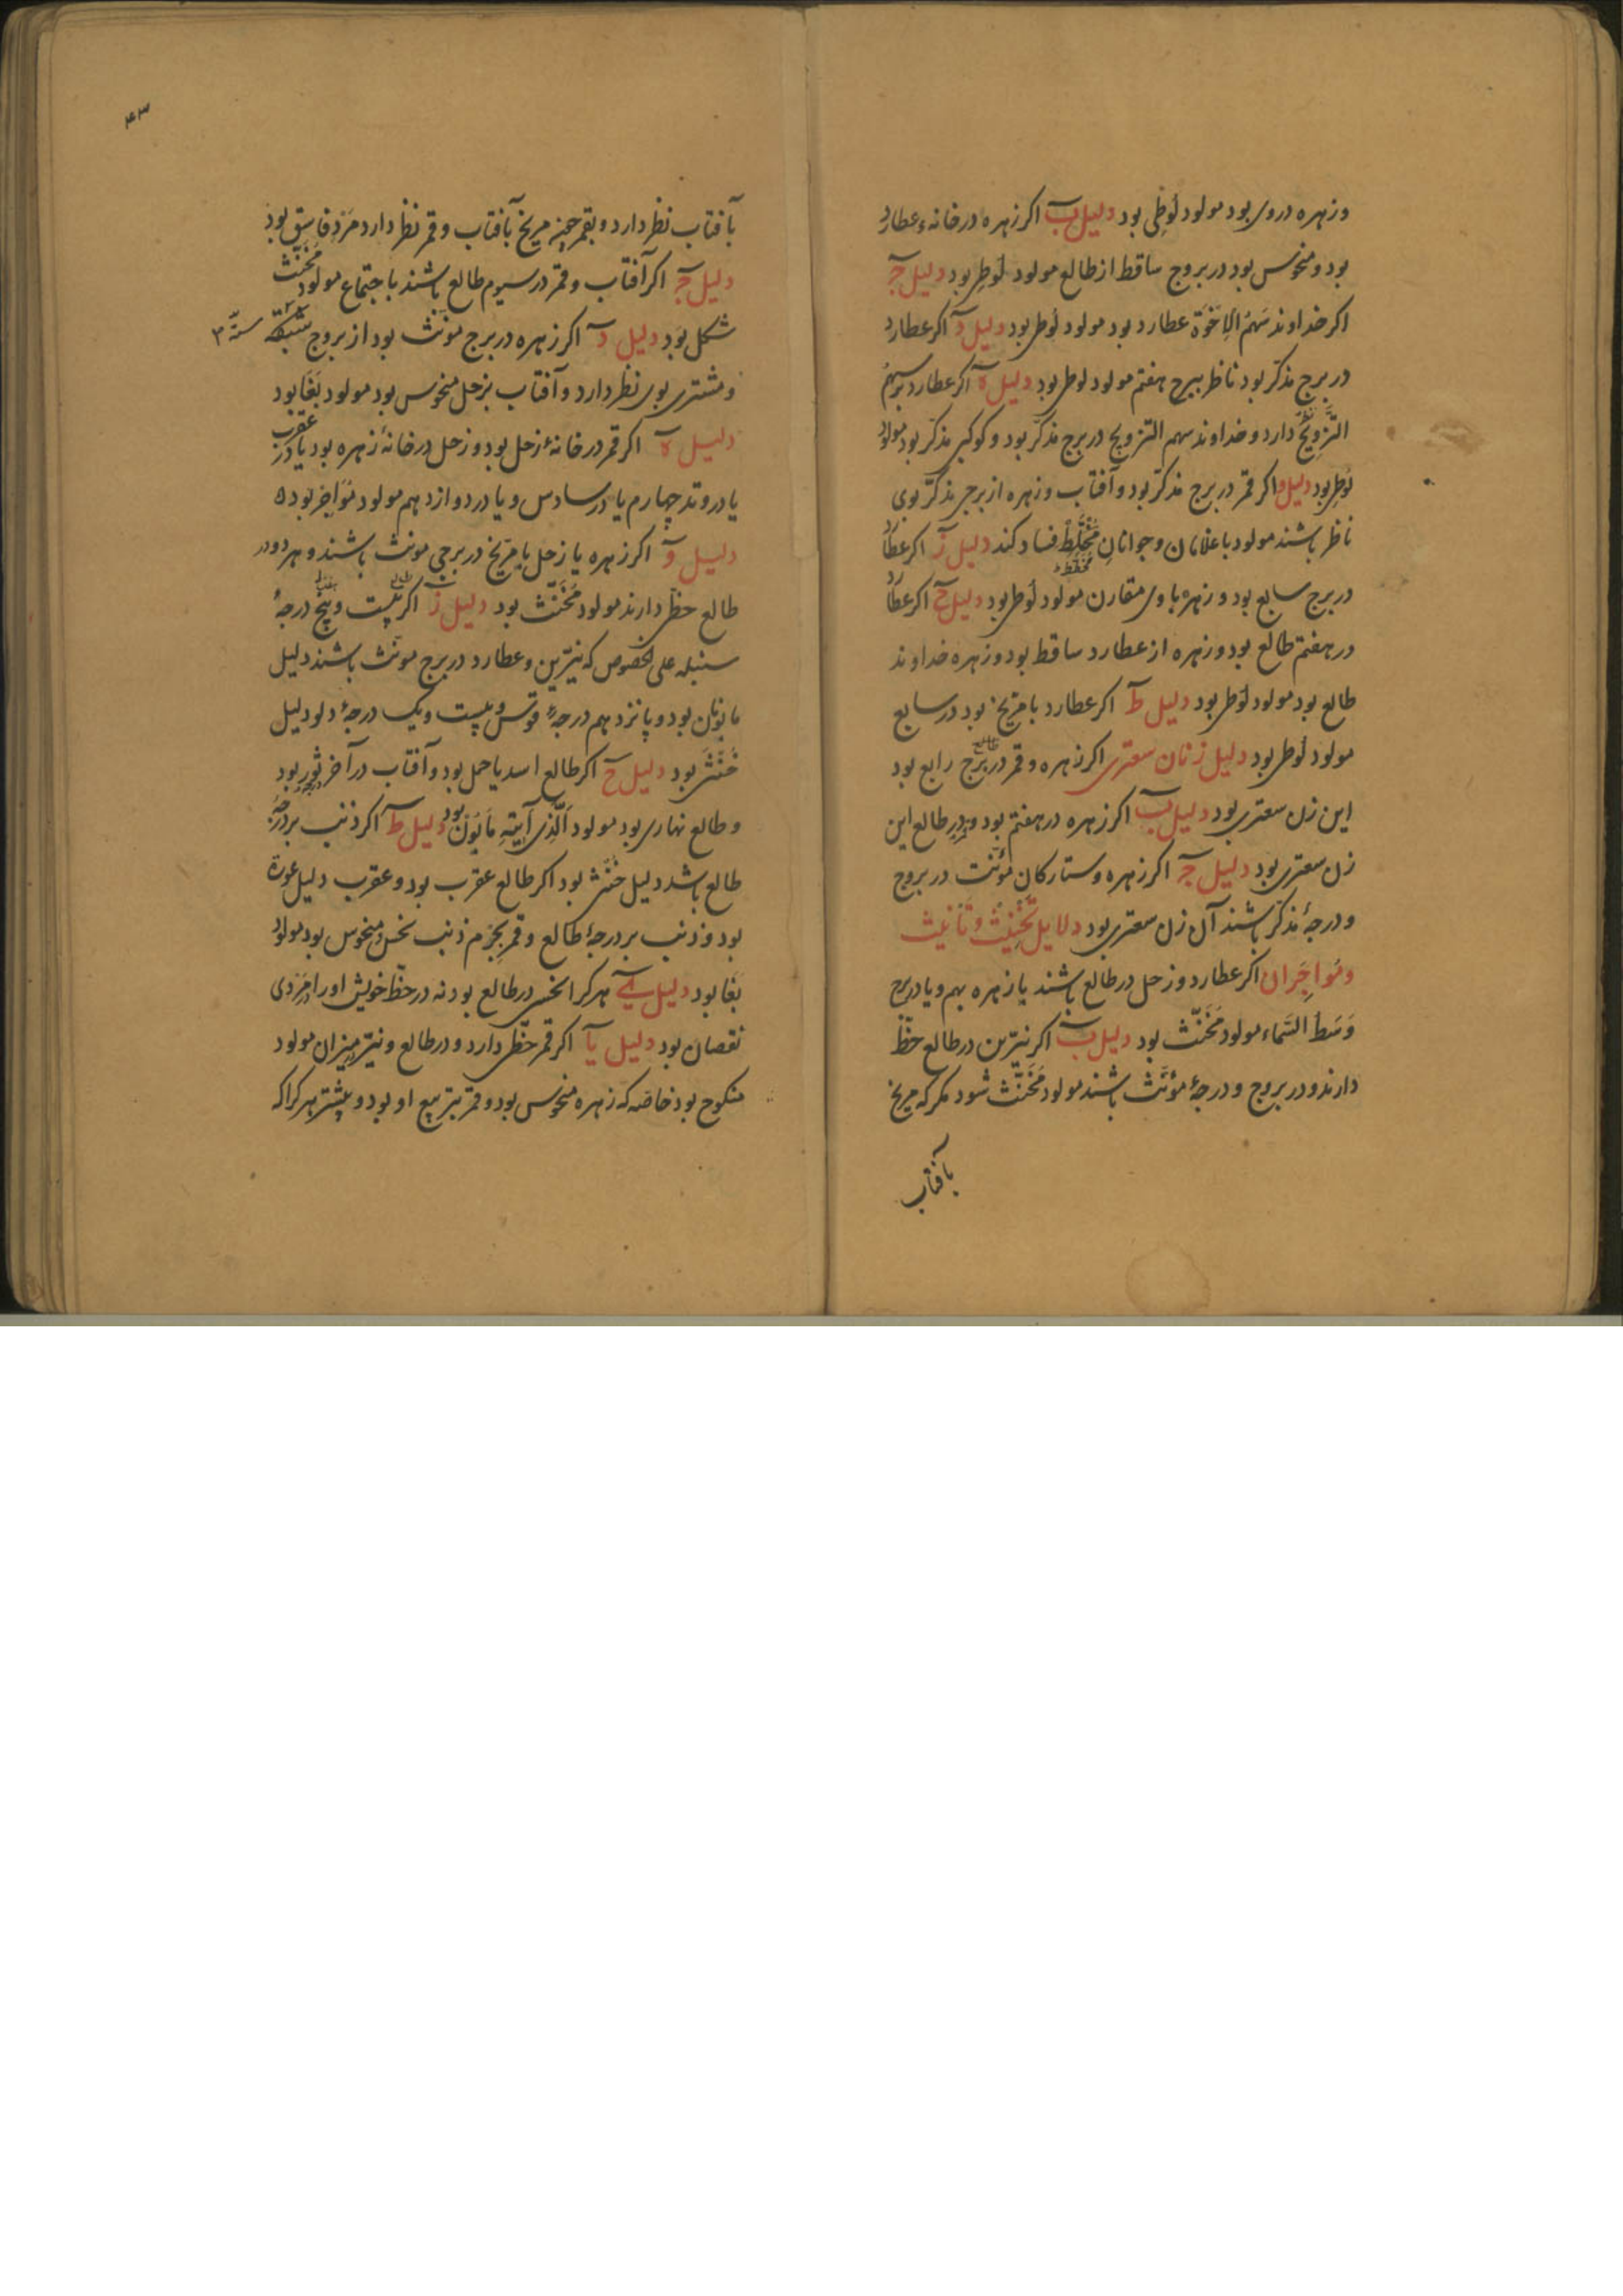 و زهره در وی بود مولود لُوطِی بود دلیل ب اکر زهره در خانهٔ عطارد
بود و منحوس بود در بروج ساقط از طالع مولود لُوطِی بود دلیل ج
اکر خداوند سَهمُ الاِخوَة عطارد بود مولود لُوطی بود دلیل د اکر عطارد
در برج مذکّر بود ناظر ببرج هفتم مولود لوطی بود دلیل ه اکر عطارد بر سهمُ
التَّزوِیج دارد و خداوند سهم التزویج در برج مذکّر بود و کوکبی مذکر بود مولود
لُوطِی بود دلیل و اکر قمر در برج مذکّر بود و آفتاب و زهره از برجی مذکّر بوی
ناظر باشند مولود با غلامان و جوانانِ مُخَلِّط فساد کند دلیل ز اکر عطارد
در برج سابع بود و زهره با وی مقارن مولود لُوطی بود دلیل ح اکر عطارد
در هفتم طالع بود و زهره از عطارد ساقط بود و زهره خداوند
طالع بود مولود لُوطی بود دلیل ط اکر عطارد با مریخ بود در سابع
مولود لُوطی بود دلیل زنان سعتری اکر زهره و قمر در برج رابع بود
طالع
این زن سعتری بود دلیل ب اکر زهره در هفتم بود و قمر در طالع این
زن سعتری بود دلیل ج اکر زهره و ستارکان مؤنّث در بروج
و درجهٔ مذکّر باشند آن زن سعتری بود دلایل تَخنِیث و تَانِیث
و مُواجِران اکر عطارد و زحل در طالع باشند یا زهره بهم و یا در برج
وَسَط السَّماء مولود مُخَنَّث بود دلیل ب اکر نیّرین در طالع حظّ
دارند و در بروج و درجهٔ مؤنَّث باشند مولود مُخَنَّث شود مکر که مریخ
بآفتاب
۴۳
بآفتاب نظر دارد و بقمر مریخ بآفتاب و قمر نظر دارد مَردِ فاسِق بود
دلیل ج اکر آفتاب و قمر در سیوم طالع باشند باجتماع مولود مُخَنَّث
شکل بُوَد دلیل د اکر زهره در برج مونّث بود از بروج
و مشتری بوی نظر دارد و آفتاب بزحل منحوس بود مولود بَغَا بود
دلیل ه اکر قمر در خانهٔ زحل بود و زحل در خانهٔ زهره بود یا در عقرب
یا در وتد چهارم یا در سادس و یا در دوازدهم مولود مُوَاجِر بود
دلیل و اکر زهره یا زحل یا مریخ در برجی مونث باشند و هر دو در
طالع حظّی دارند مولود مُخَنَّث بود دلیل ز اکر بیست و پنج درجهٔ
سنبله علی الخصوص که نیّرین و عطارد در برج مونّث باشند دلیل
مابُونان بود و پانزدهم درجهٔ قوس و بیست و یک درجهٔ دلو دلیل
خُنثَی بود دلیل ح اکر طالع اسد یا حمل بود و آفتاب در آخر ثور بود
و طالع نهاری بود مولود مَابُون بود دلیل ط اکر ذنب بر درجهٔ
طالع باشد دلیل خُنثی بود اکر طالع عقرب بود و عقرب دلیل عورة
بود و ذنب بر درجهٔ طالع و قمر بجزم ذنب نحس و منحوس بود مولود
بَغَا بود دلیل ی هرکرا نحسی در طالع بود نه در حظّ خویش او را در مَردی
نقصان بود دلیل یا اکر قمر حظّی دارد و در طالع و نیّر میزان مولود
منکوح بود خاصّه که زهره منحوس بود و قمر بتربیع او بود و بیشتر هرکرا که